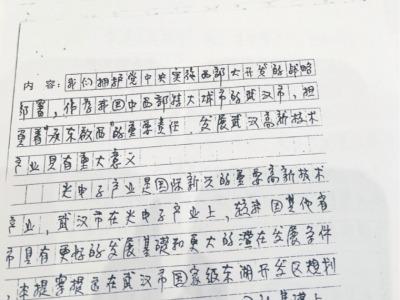 内容：我们拥护党中央实施西部大开发的战略
部署，作为我国中西部特大城市的武汉市，担
负着“承东启西”的重要责任，发展武汉高新技术
产业具有重大意义
光电子产业是国际新兴的重要高新技术
产业，武汉市在光电子产业上，较我国其他省
市具有更好的发展基础和更大的潜在发展条件
本提案提出在武汉市国家级东湖开发区规划